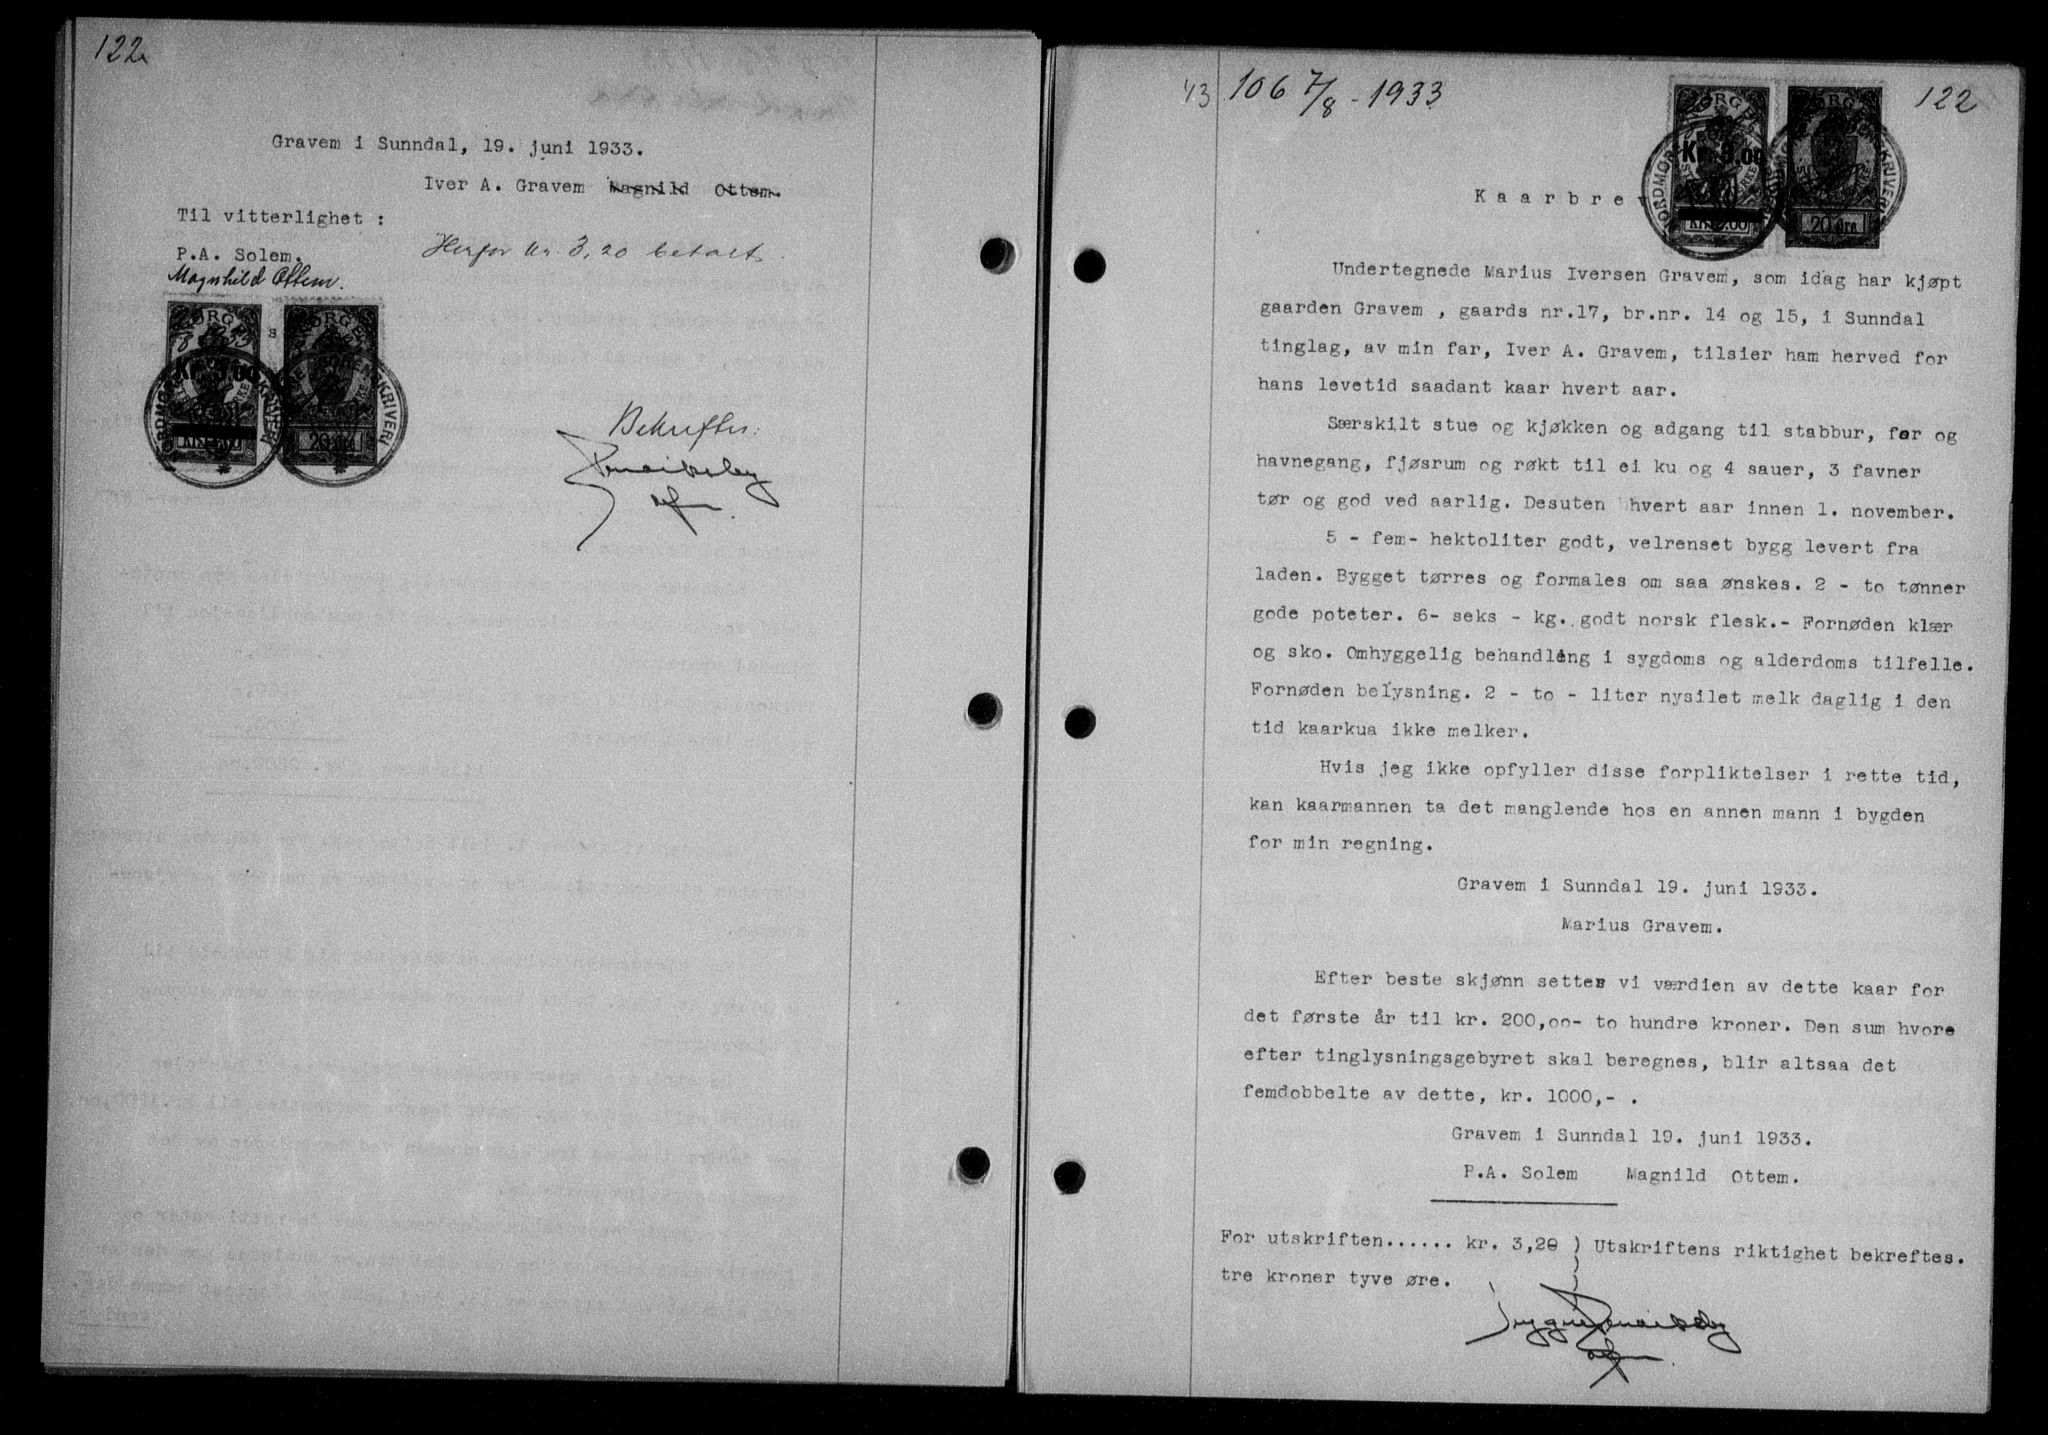 122
Gravem i Sunndal, 19. juni 1933.
Iver A. Gravem Magnild Ottem.
Til vitterlighet :
P.A. Solem.
Magnhild Ottem.
Herfor kr. 3,20 betalt.
s
Kr. 3.00
20 Øre
Bekreftes:
43 106 7/8 - 1933
122
Kr. 3.00
20 Øre
Kaarbrev
Undertegnede Marius Iversen Gravem, som idag har kjøpt
gaarden Gravem , gaards nr.17, br.nr. 14 og 15, i Sunndal
tinglag, av min far, Iver A. Gravem, tilsier ham herved for
hans levetid saadant kaar hvert aar.
Særskilt stue og kjøkken og adgang til stabbur, for og
havnegang, fjøsrum og røkt til ei ku og 4 sauer, 3 favner
tør og god ved aarlig. Desuten hvert aar innen 1. november.
5 - fem- hektoliter godt, velrenset bygg levert fra
laden. Bygget tørres og formales om saa ønskes. 2 - to tønner
gode poteter. 6- seks - kg. godt norsk flesk.- Fornøden klær
og sko. Omhyggelig behandling i sygdoms og alderdoms tilfelle.
Fornøden belysning. 2 - to - liter nysilet melk daglig i den
tid kaarkua ikke melker.
Hvis jeg ikke opfyller disse forpliktelser i rette tid,
kan kaarmannen ta det manglende hos en annen mann i bygden
for min regning.
Gravem i Sunndal 19. juni 1933.
Marius Gravem.
Efter beste skjønn setter vi værdien av dette kaar for
det første år til kr. 200,00- to hundre kroner. Den sum hvore
efter tinglysningsgebyret skal beregnes, blir altsaa det
femdobbelte av dette, kr. 1000,- .
Gravem i Sunndal 19. juni 1933.
P.A. Solem Magnild Ottem.
For utskriften...... kr. 3,20 ) Utskriftens riktighet bekreftes.
tre kroner tyve øre.